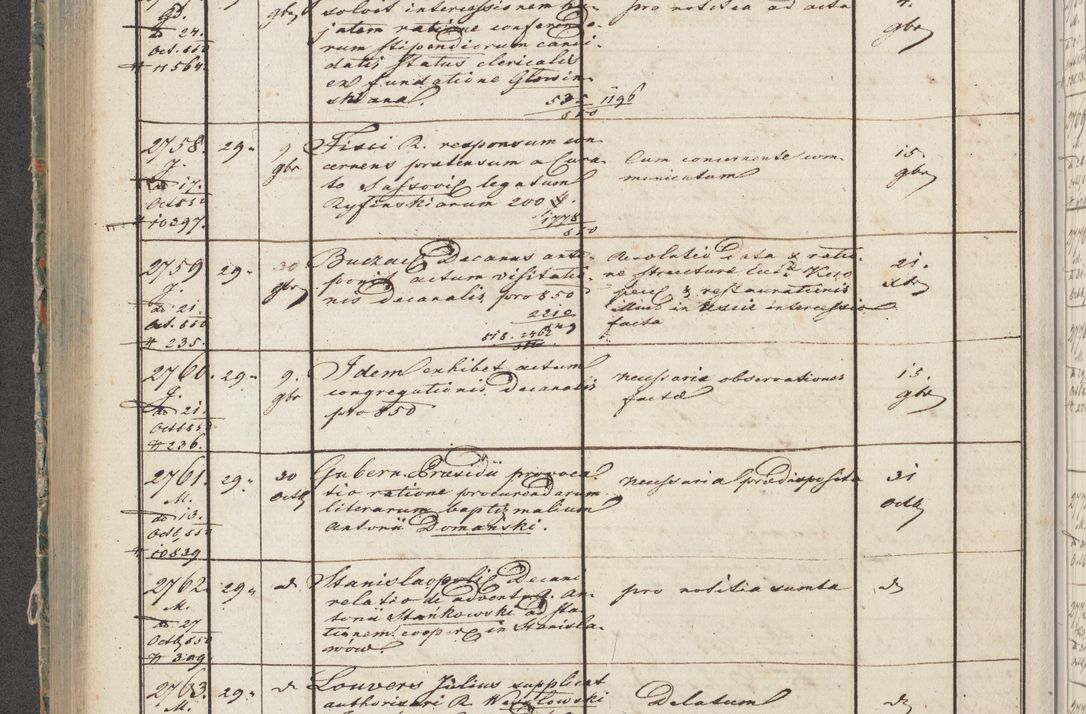 Gd.
24.
Oct. 850
# 11564.
gbr
solvit intercessionem
ratione conferendo-
rum stipendiorum candi-
datis status clericalis
ex fundatione Głowin-
skiana.
535 1196
850
pro notitia ad acta
4.
gbr
2758.
J.
17.
Oct 850
# 10297.
29.
9.
gbr
Fisci R. responsum con-
cernens praetensum a Cura-
to Sassoviensi legatum
Ryfinskiarum 200 f.
1778
850
Cum concernente com-
municatum
15.
gbr
2759
J.
21.
Oct. 850
# 235.
29.
30
gbr
Buczacz Decanus ante-
ponit actum visitatio-
nis decanalis pro 850
2212
515. 2462
850
Revolutio data & ratio-
ne structurae
& restaurationis
intercessio
facta
21.
xbr
2760.
J.
21.
Oct 850
# 236.
29.
9.
gbr
Idem exhibet actum
congregationis Decanalis
pro 850
necessaria observationes
factae
15.
gbr
2761.
M.
13.
Oct. 850
# 10839
29.
30
Octb
Gubern. Praesidii provoca-
tio ratione procurendarum
literarum baptismalium
Antonii Domański.
necessaria praedisposita
31
Octb
2762.
M.
27
Octb. 850
# 309.
29.
d
Stanislaopolis Decani
relatio de adventu An-
tonii Stańkowski ad sta-
tionem cooper. in Stanisla-
wów.
pro notitia sumta
d
2763.
M.
29.
d
Louvers Julius supplicat
authorisari R.
Delatum
d